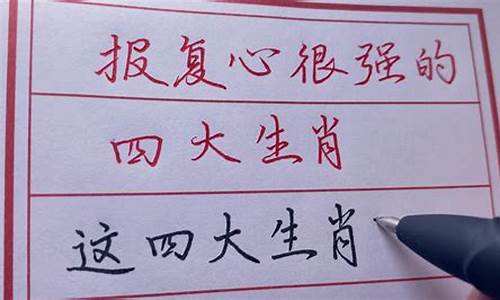 报复心很强的
四大生肖
这四大生肖